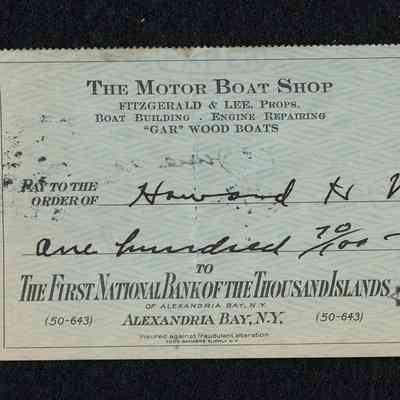 THE MOTOR BOAT SHOP
FITZGERALD & LEE, PROPS.
BOAT BUILDING . ENGINE REPAIRING
"GAR" WOOD BOATS
PAY TO THE
ORDER OF Howard N
one hundred 70/100
TO
THE FIRST NATIONAL BANK OF THE THOUSAND ISLANDS
OF ALEXANDRIA BAY, N.Y.
(50-643) ALEXANDRIA BAY, N.Y. (50-643)
Insured against fraudulent alteration